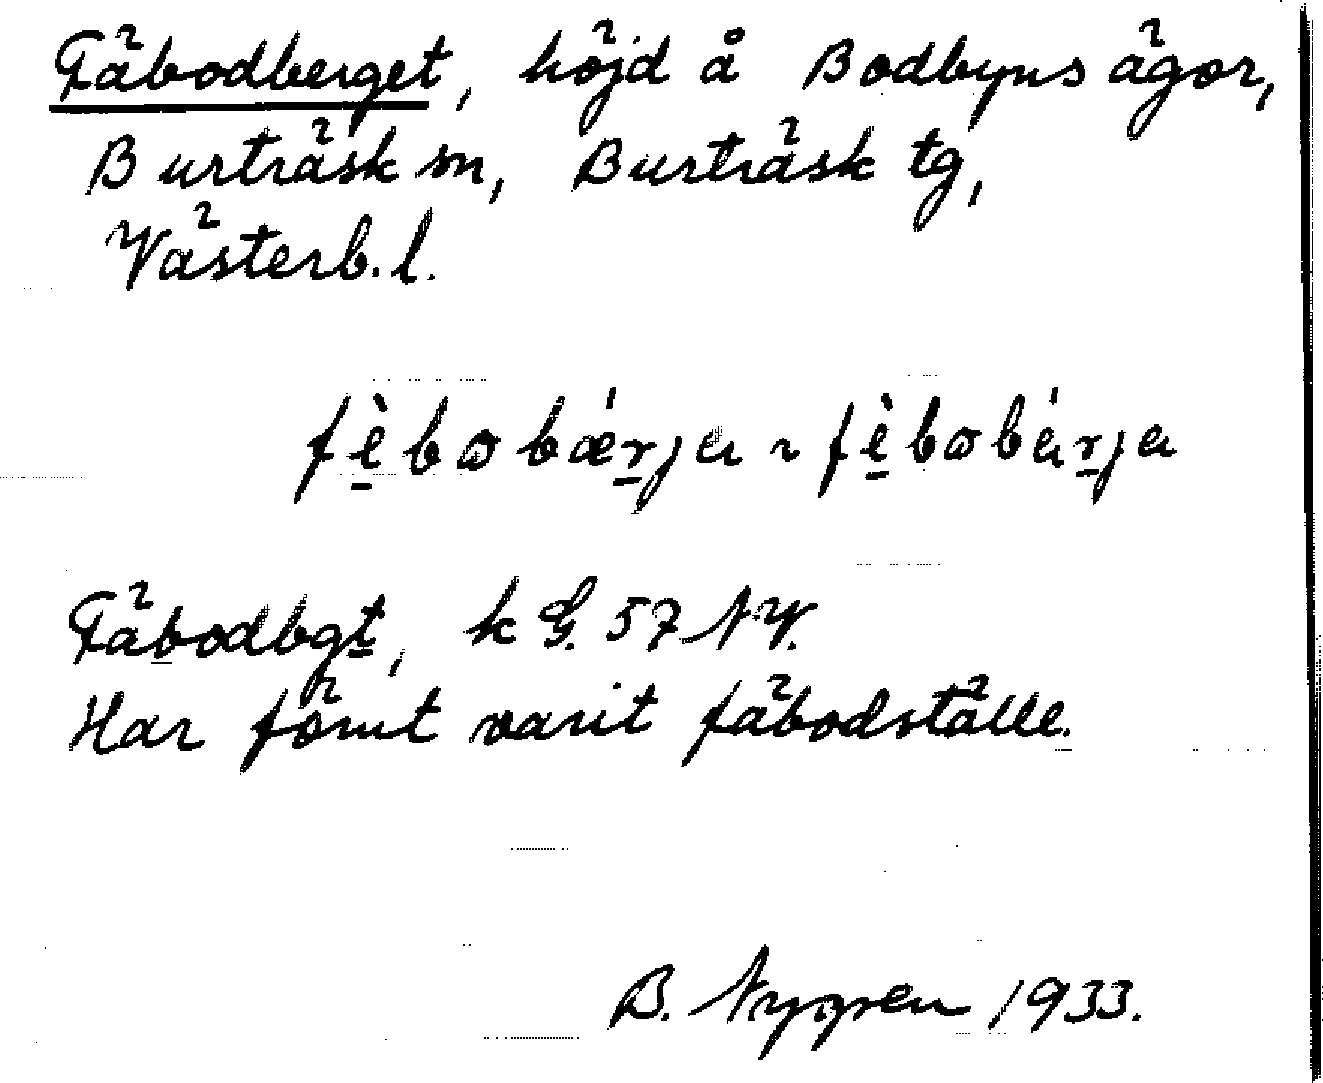 Fäbodberget, höjd å Bodbyns ägor,
Burträsk sn, Burträsk tg,
Västerb. l.
fè̱bɷbǽṟja ~ fè̱bɷbáṟja
Fäbodbgt, k G. 57 NV.
Har förut varit fäbodställe.
B. Nygren 1933.